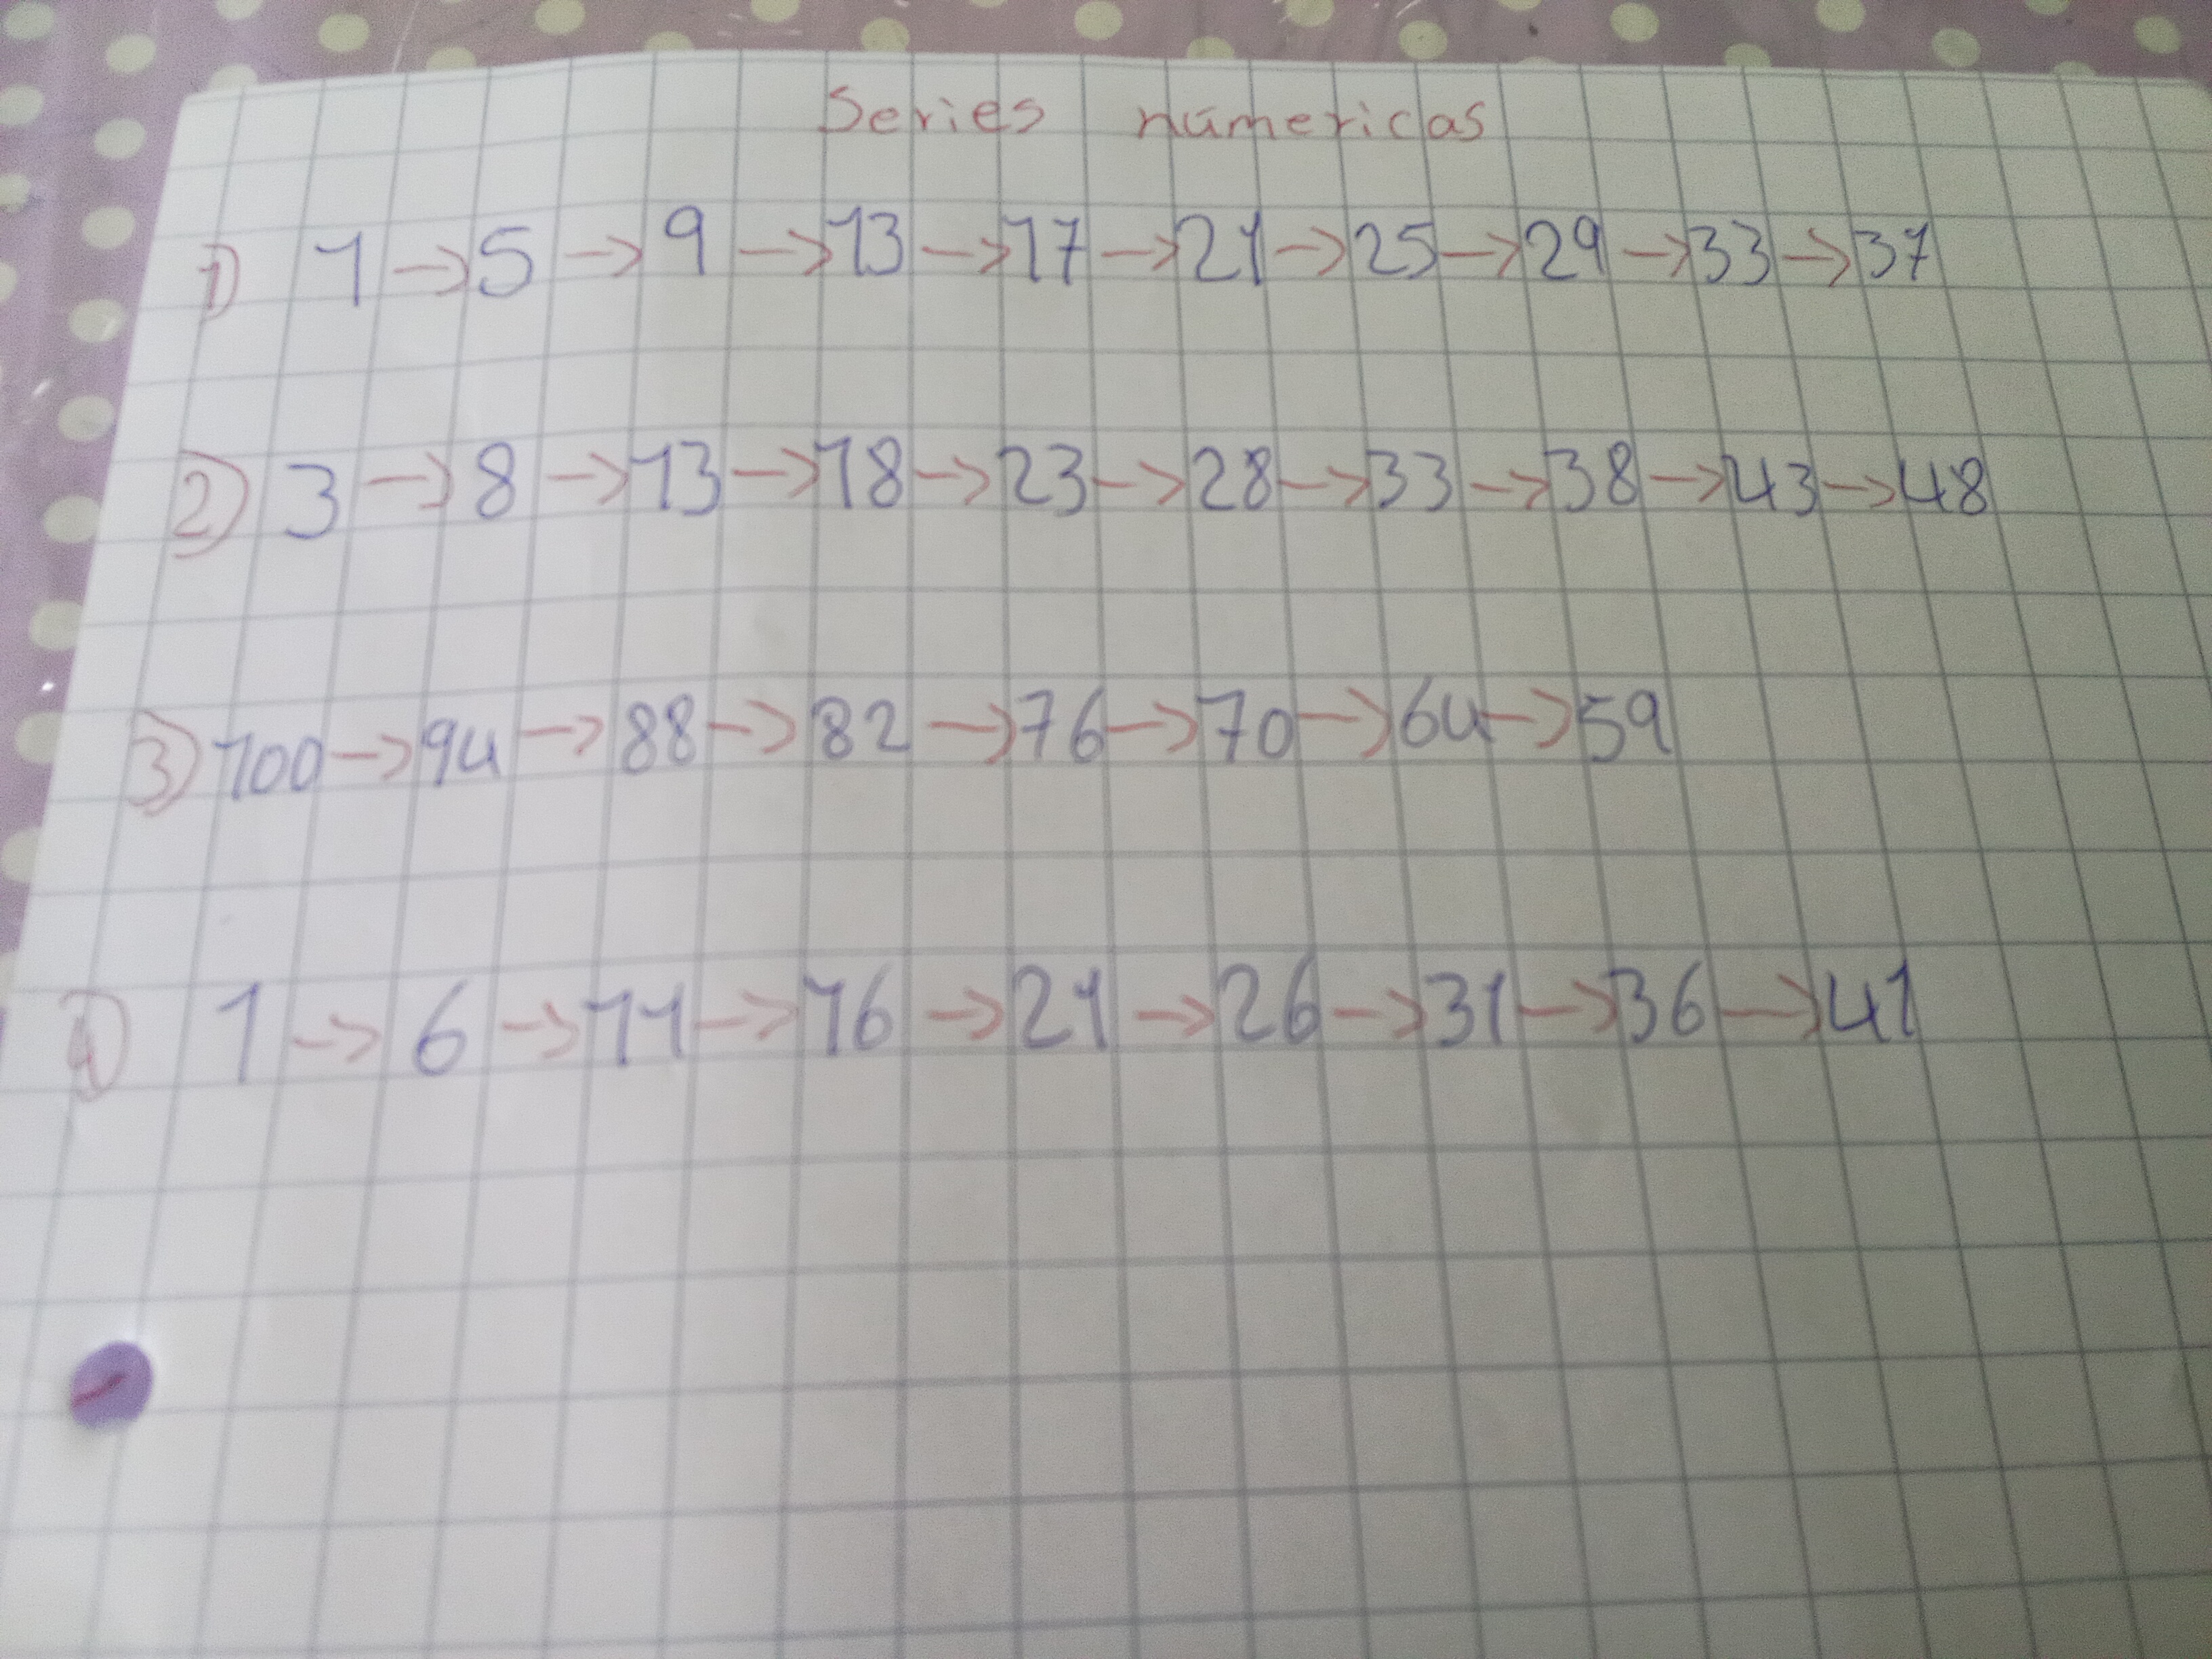 Series númericas
1) 1 → 5 → 9 → 13 → 17 → 21 → 25 → 29 → 33 → 37
2) 3 → 8 → 13 → 18 → 23 → 28 → 33 → 38 → 43 → 48
3) 100 → 94 → 88 → 82 → 76 → 70 → 64 → 59
4) 1 → 6 → 11 → 16 → 21 → 26 → 31 → 36 → 41